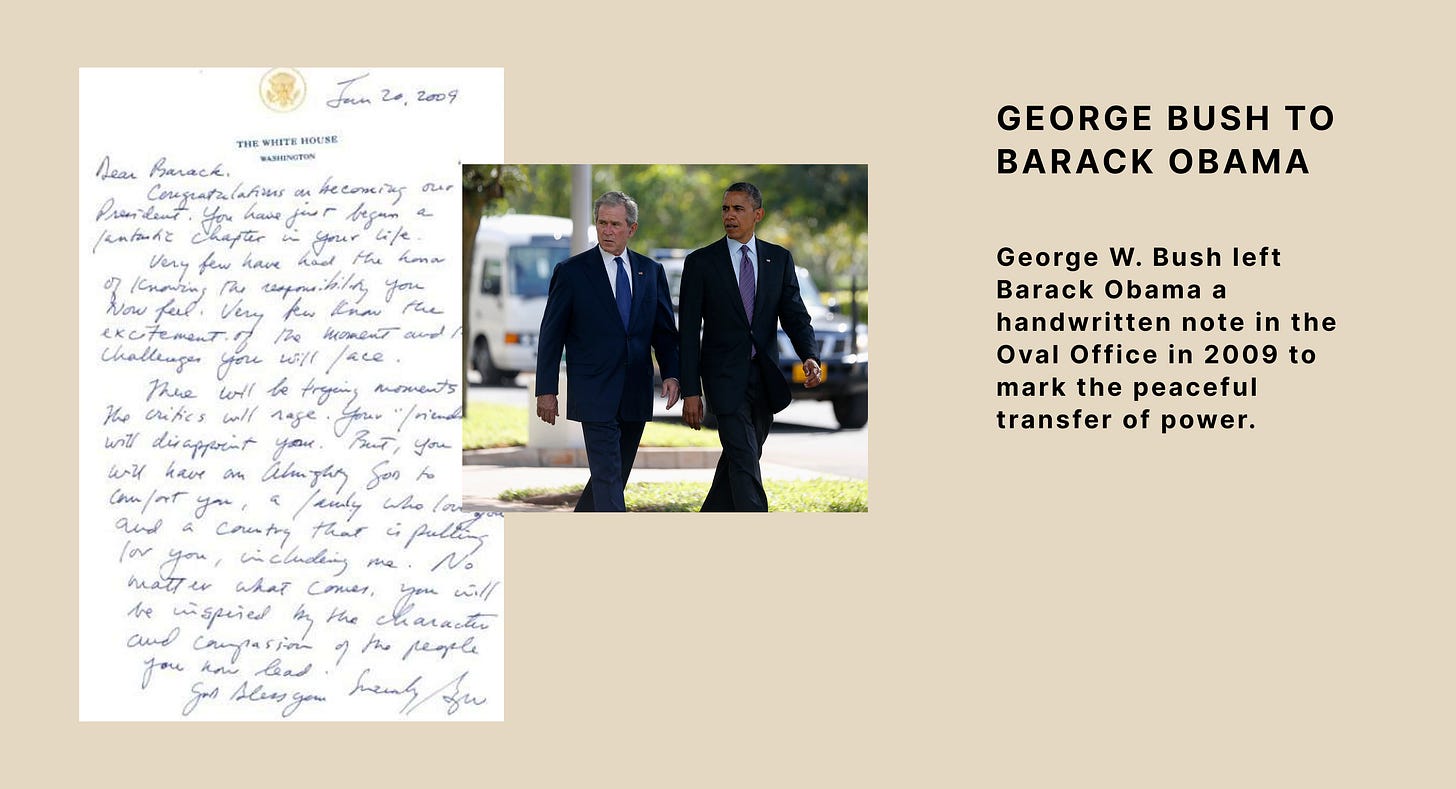 Jan 20, 2009
THE WHITE HOUSE
WASHINGTON
Dear Barack,
Congratulations on becoming our
President. You have just begun a
fantastic chapter in your life.
Very few have had the honor
of knowing the responsibility you
now feel. Very few know the
excitement of the moment and
challenges you will face.
There will be trying moments
The critics will rage. Your "friend
will disappoint you. But, you
will have an Almighty God to
comfort you, a family who loves you
and a country that is pulling
for you, including me. No
matter what comes, you will
be inspired by the character
and compassion of the people
you now lead.
God bless you
Sincerely,
GEORGE BUSH TO
BARACK OBAMA
George W. Bush left
Barack Obama a
handwritten note in the
Oval Office in 2009 to
mark the peaceful
transfer of power.